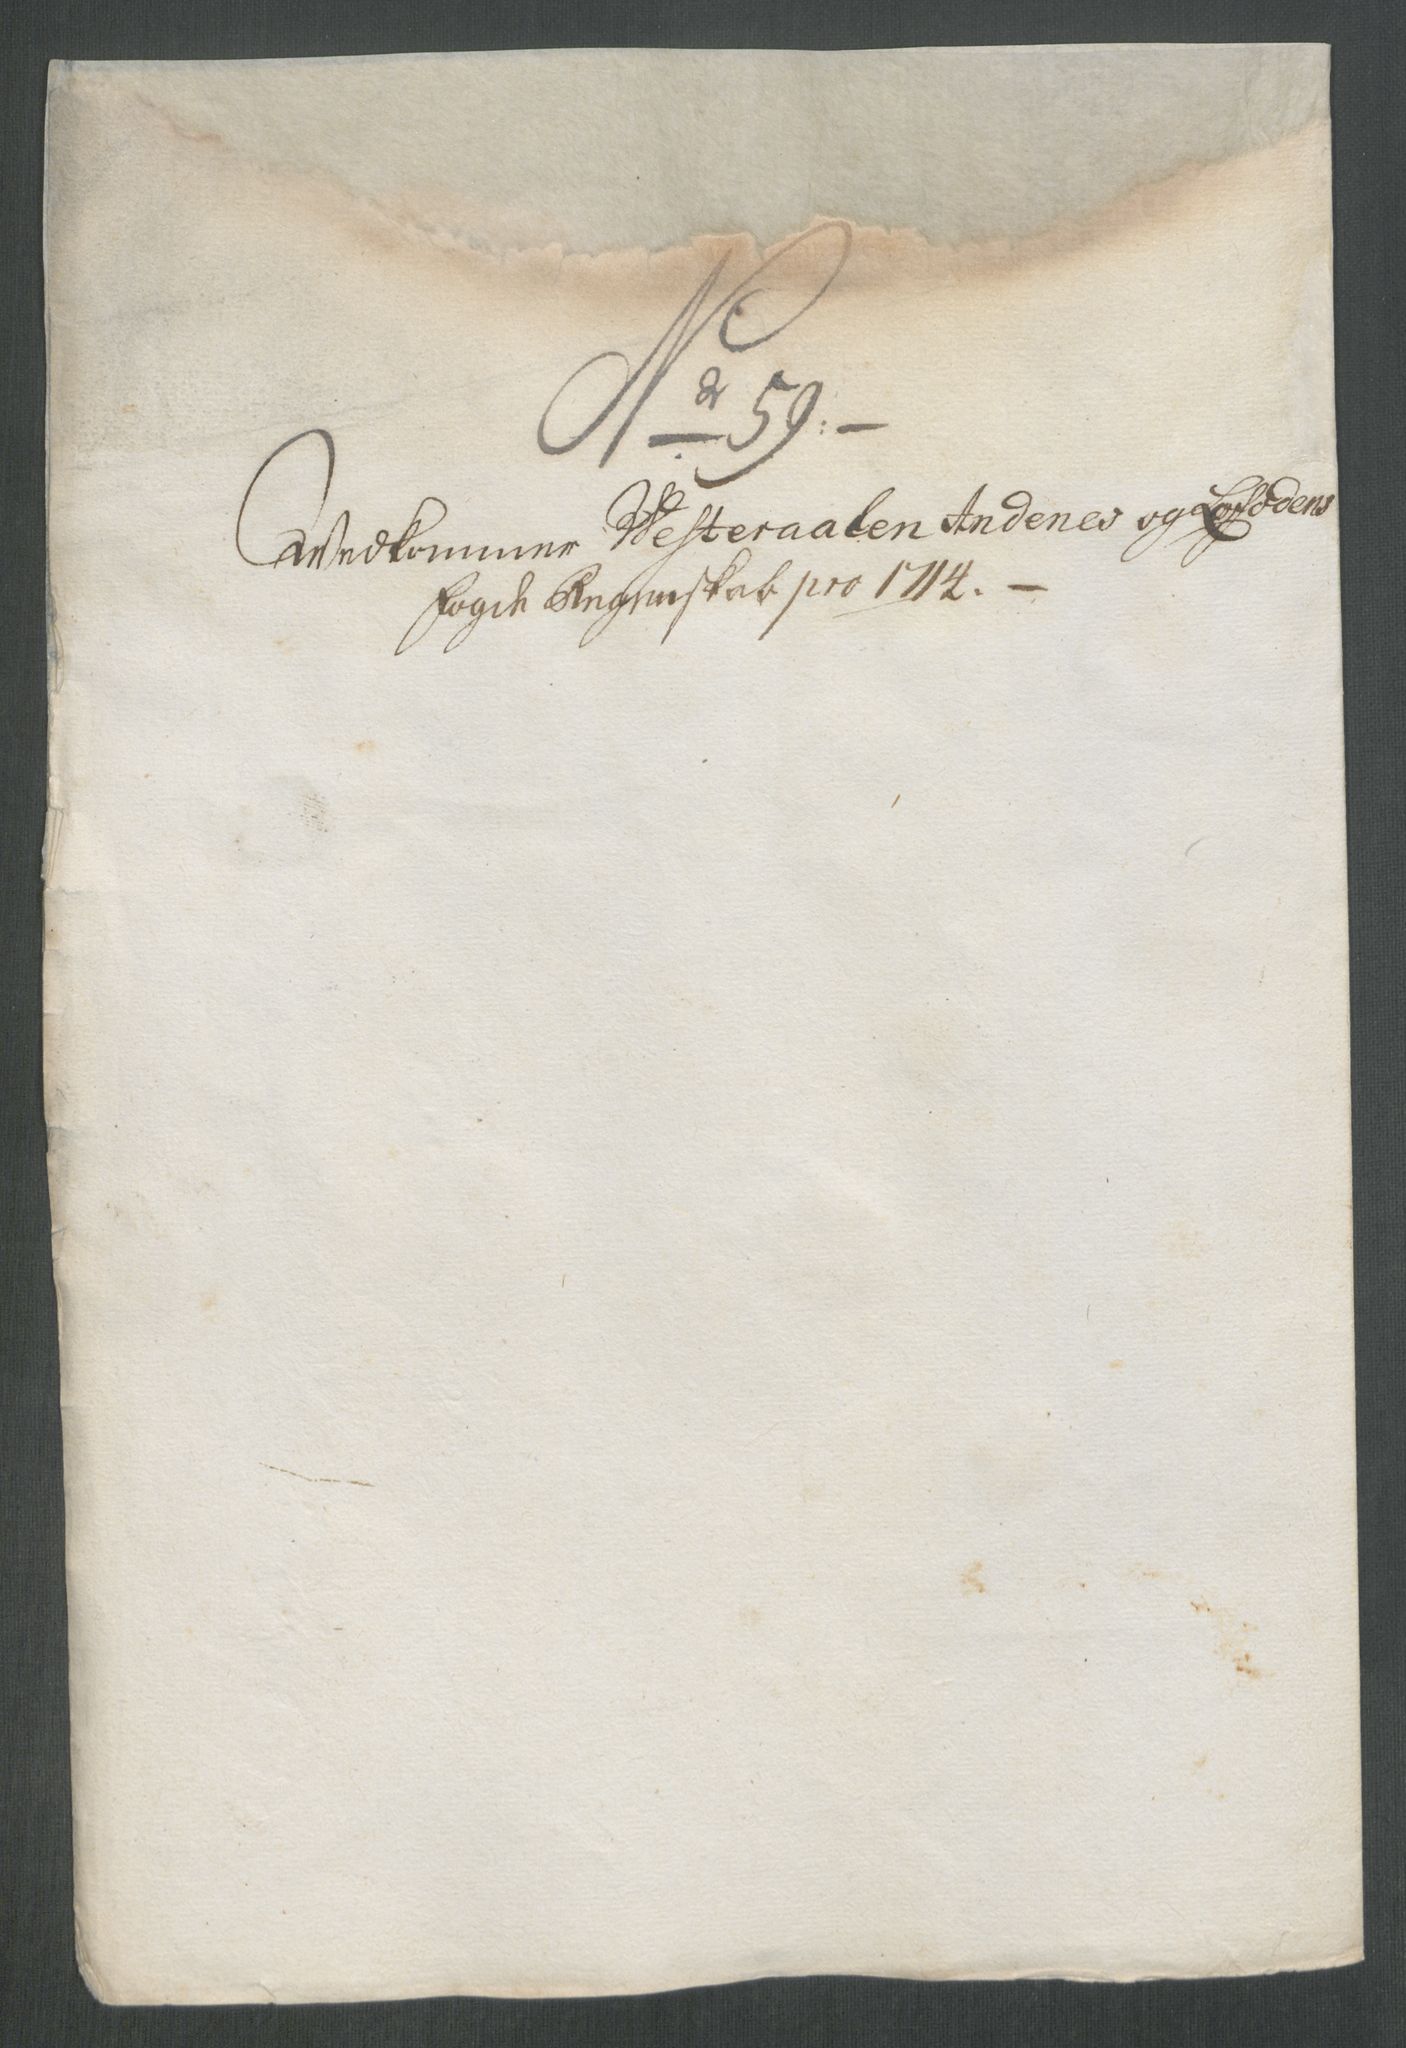 No 59.
Vedkommer Westeraalen Andenes og Lofodens
fogde Regenskab pro 1714.